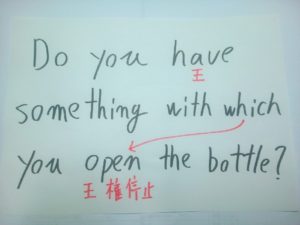 Do you have
王
something with which
you open the bottle?
王 権停止